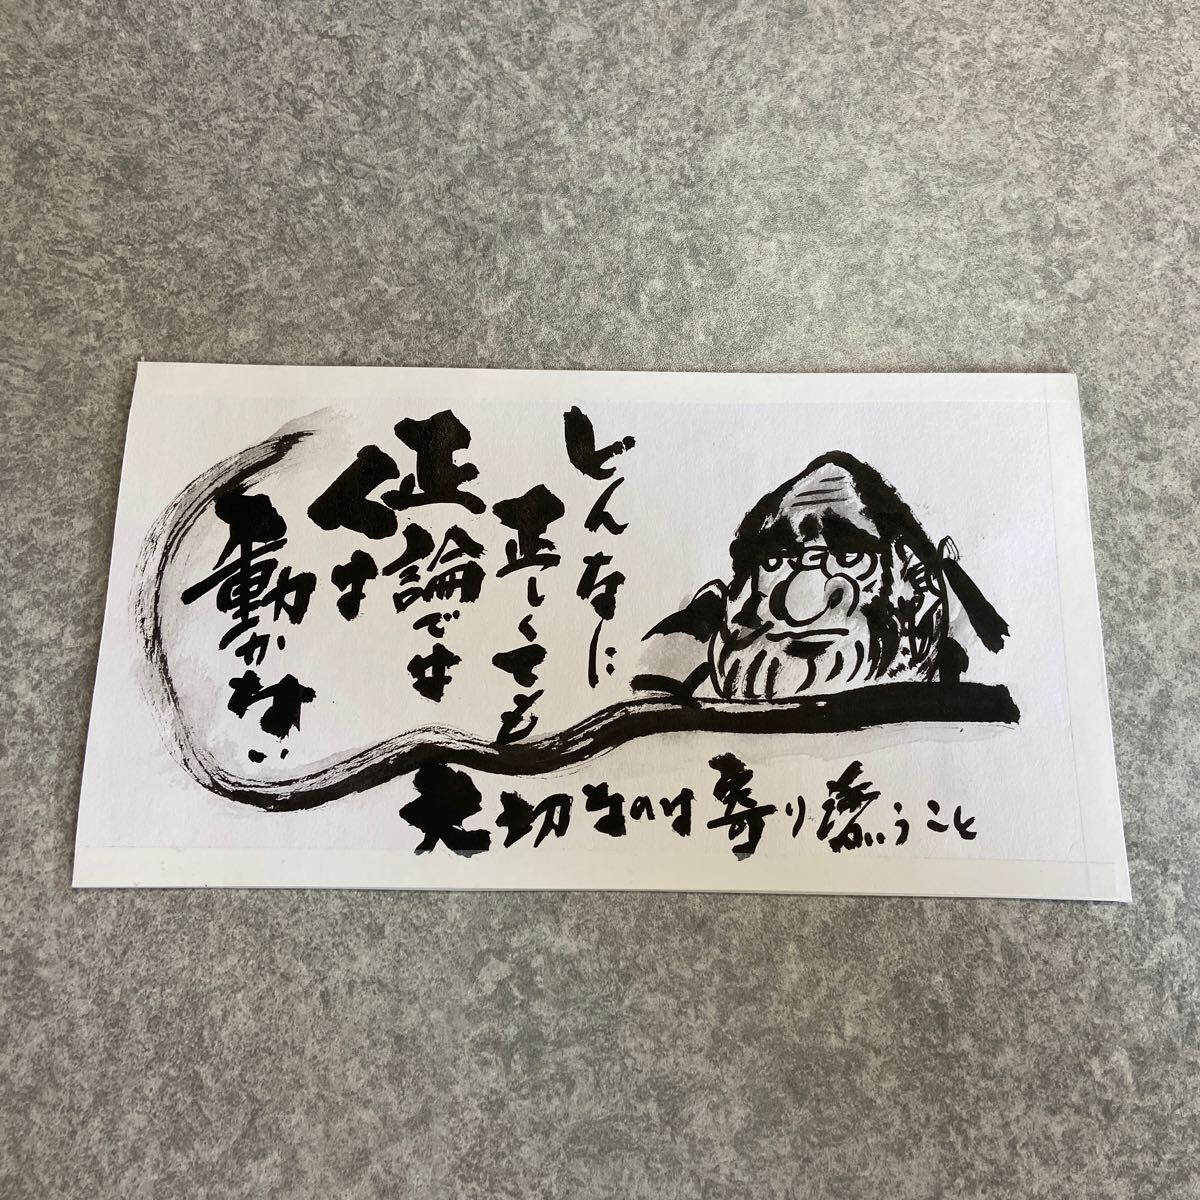 どんなに
正しくても
正論では
人は
動かない
大切なのは寄り添うこと